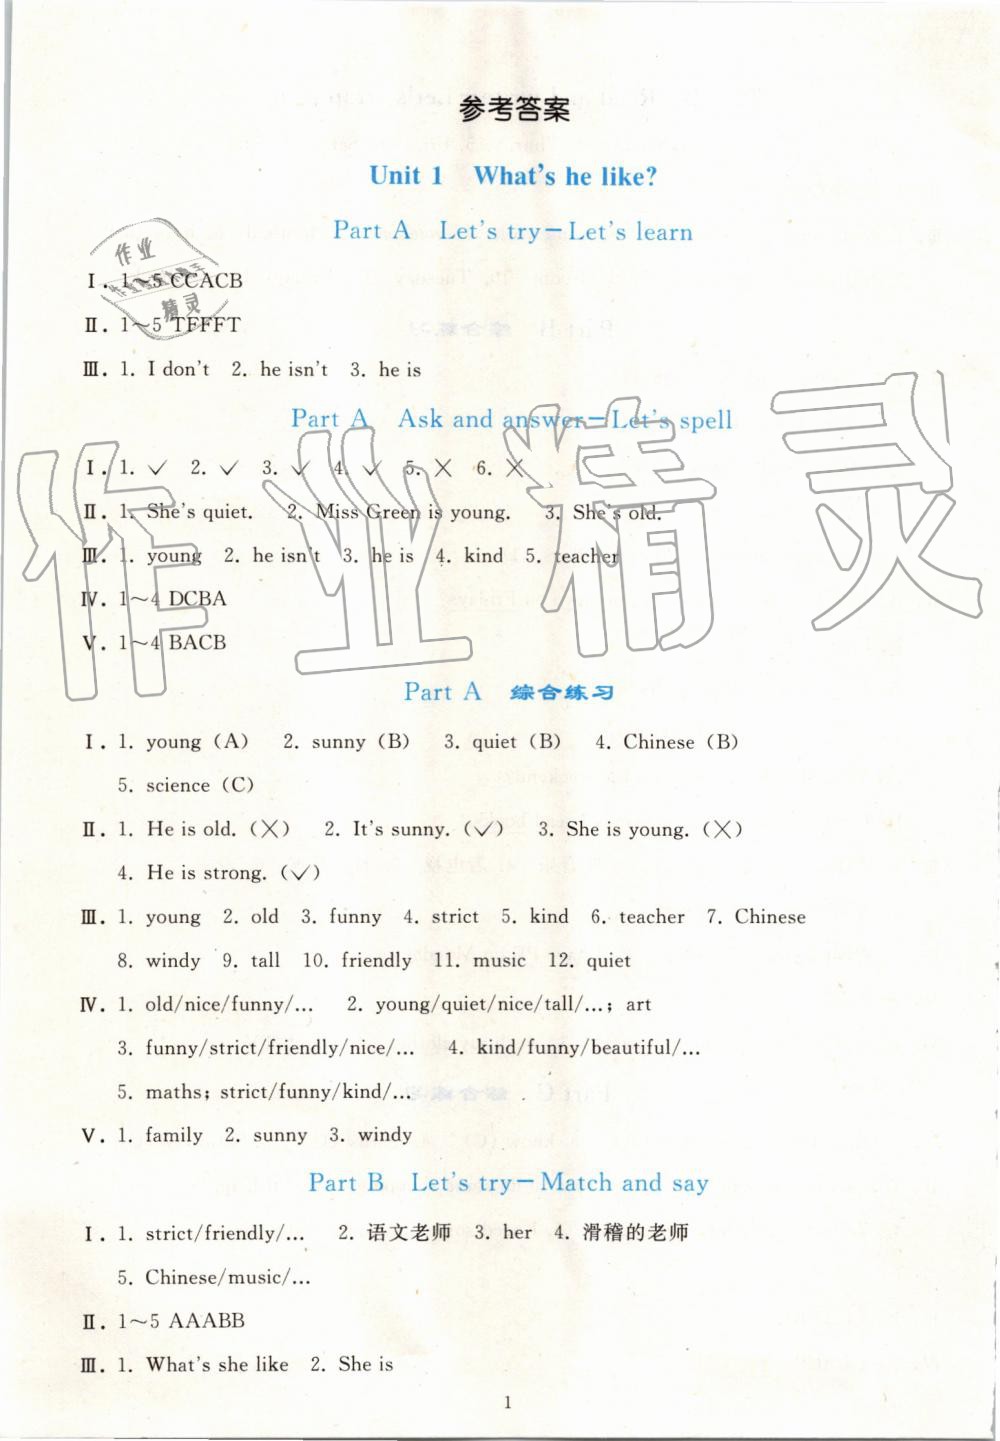 参考答案
Unit 1 What's he like?
Part A Let's try—Let's learn
Ⅰ. 1～5 CCACB
Ⅱ. 1～5 TFFFT
Ⅲ. 1. I don't 2. he isn't 3. he is
Part A Ask and answer—Let's spell
Ⅰ. 1. ✓ 2. ✓ 3. ✓ 4. ✓ 5. ✕ 6. ✕
Ⅱ. 1. She's quiet. 2. Miss Green is young. 3. She's old.
Ⅲ. 1. young 2. he isn't 3. he is 4. kind 5. teacher
Ⅳ. 1～4 DCBA
Ⅴ. 1～4 BACB
Part A 综合练习
Ⅰ. 1. young (A) 2. sunny (B) 3. quiet (B) 4. Chinese (B)
5. science (C)
Ⅱ. 1. He is old. (✕) 2. It's sunny. (✓) 3. She is young. (✕)
4. He is strong. (✓)
Ⅲ. 1. young 2. old 3. funny 4. strict 5. kind 6. teacher 7. Chinese
8. windy 9. tall 10. friendly 11. music 12. quiet
Ⅳ. 1. old/nice/funny/... 2. young/quiet/nice/tall/...; art
3. funny/strict/friendly/nice/... 4. kind/funny/beautiful/...
5. maths; strict/funny/kind/...
Ⅴ. 1. family 2. sunny 3. windy
Part B Let's try—Match and say
Ⅰ. 1. strict/friendly/... 2. 语文老师 3. her 4. 滑稽的老师
5. Chinese/music/...
Ⅱ. 1～5 AAABB
Ⅲ. 1. What's she like 2. She is
1
作业精灵
作业
精灵